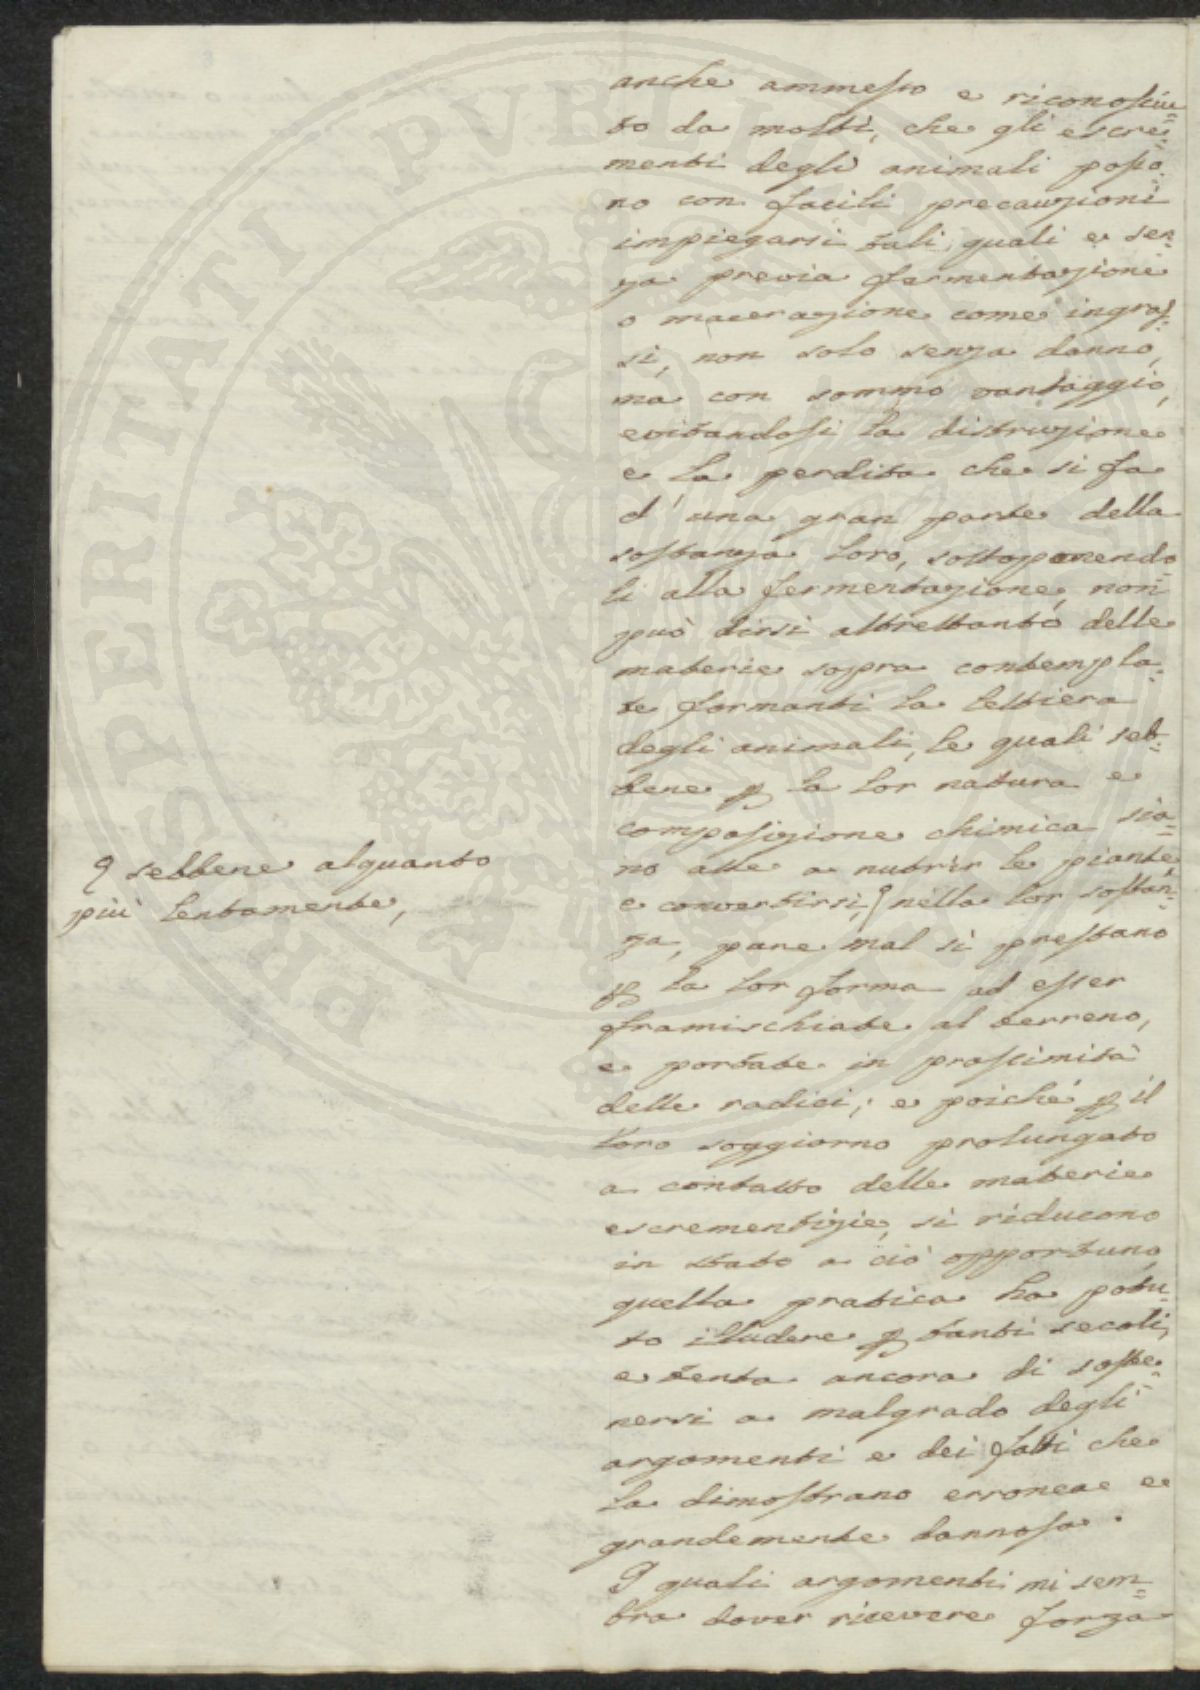 anche ammesso e riconosciu=
to da molti, che gli escre=
menti degli animali posso=
no con facili precauzioni
impiegarsi tali quali e sen=
za previa fermentazione
o macerazione come ingras=
si, non solo senza danno,
ma con sommo vantaggio,
evitandosi la distruzione
e la perdita che si fa
d'una gran parte della
sostanza loro, sottoponendo
li alla fermentazione, non
può dirsi altrettanto delle
materie sopra contempla=
te formanti la lettiera
degli animali, le quali seb=
bene p la lor natura e
composizione chimica sia=
no atte a nutrir le piante,
e convertirsi, nella lor sostan=
za, pare mal si prestano
p la lor forma ad esser
framischiate al terreno,
e portate in prossimità
delle radici; e poiché p il
loro soggiorno prolungato
a contatto delle materie
escrementizie, si riducono
in stato a ciò opportuno,
quella pratica ha potu=
to illudere p tanti secoli,
e tenta ancora di soste=
nersi a malgrado degli
argomenti e dei fatti che
la dimostrano erronea e
grandemente dannosa.
I quali argomenti mi sem=
bra dover ricevere forza
sebbene alquanto
più lentamente,
PROSPERITATI PUBLICAE